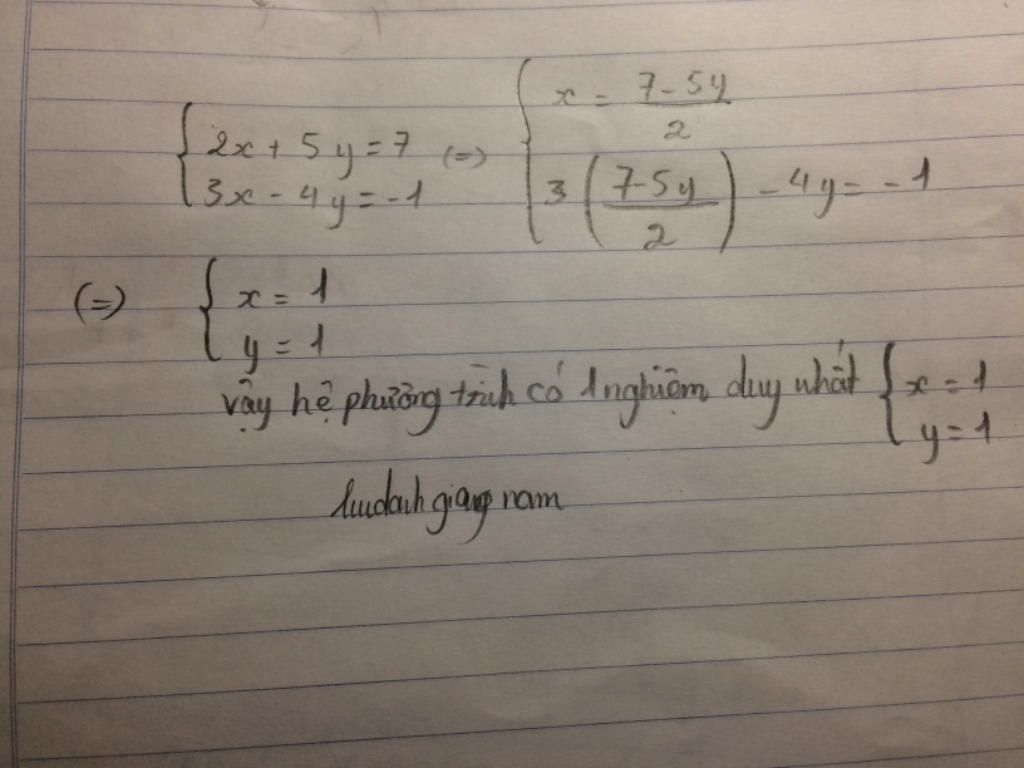 { 2x + 5y = 7
3x - 4y = -1 (=) { x = (7-5y)/2
3((7-5y)/2) - 4y = -1
(=) { x = 1
y = 1
vậy hệ phương trình có 1 nghiệm duy nhất { x = 1
y = 1
luudanhgiangnam